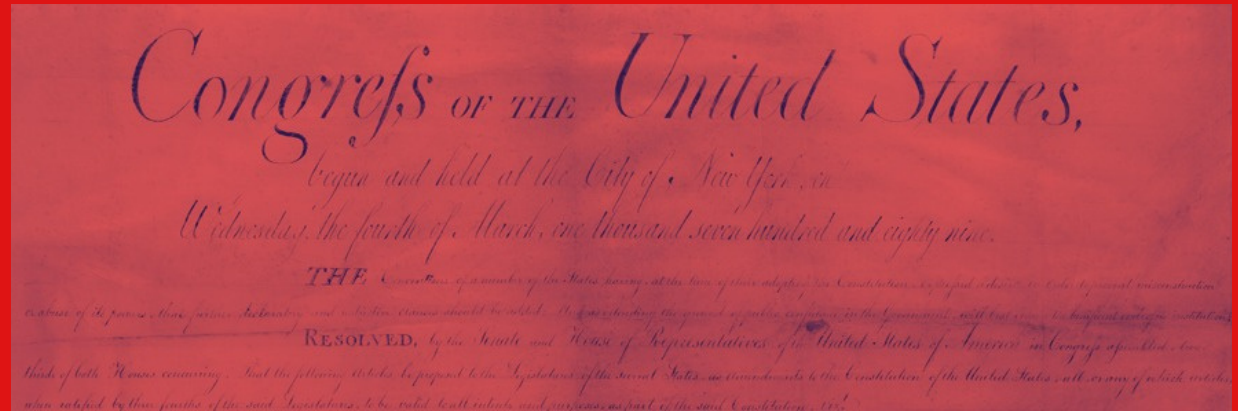 Congreſs OF THE United States,
begun and held at the City of New York, on
Wednesday, the fourth of March, one thousand seven hundred and eighty nine.
THE Conventions of a number of the States having, at the time of their adopting the Constitution, expressed a desire, in order to prevent misconstruction
or abuse of its powers, that further declaratory and restrictive clauses should be added: And as extending the ground of public confidence in the Government, will best ensure the beneficent ends of its institution,
RESOLVED, by the Senate and House of Representatives of the United States of America in Congreſs aſsembled, two
thirds of both Houses concurring, That the following Articles be proposed to the Legislatures of the several States, as Amendments to the Constitution of the United States, all or any of which articles,
when ratified by three fourths of the said Legislatures, to be valid to all intents and purposes, as part of the said Constitution, viz.